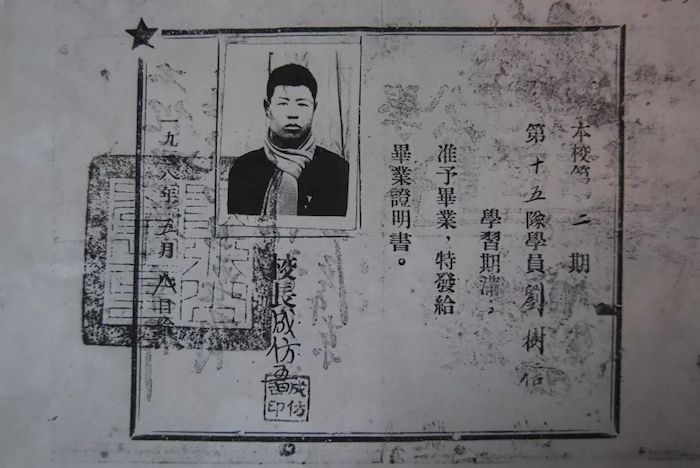 本校第 二 期
第十五隊學員 劉樹
學習期滿，
准予畢業，特發給
畢業證明書。
校長成仿吾
成仿吾印
一九 八年 五月 八日